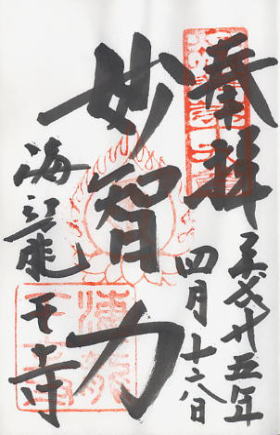 奉拝
平成廿五年
四月十六日
妙智力
海龍王寺